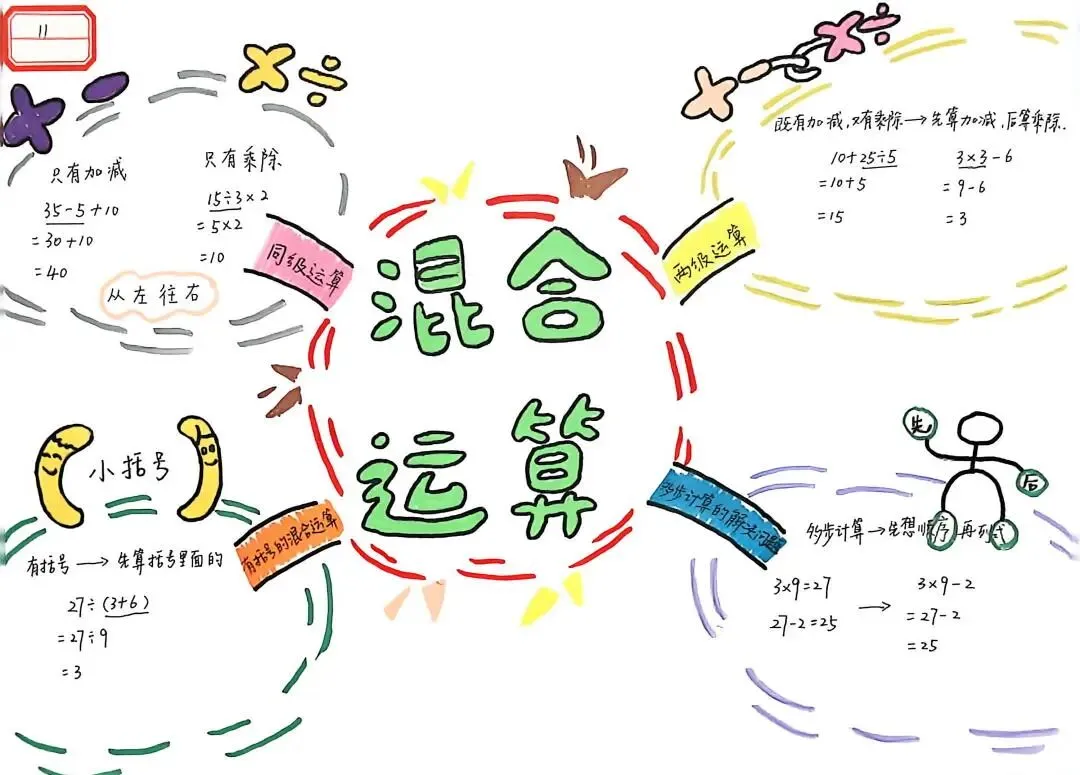 11
只有加减
35-5+10
=30+10
=40
只有乘除
15÷3×2
=5×2
=10
从左往右
同级运算
混合
运算
两级运算
既有加减,又有乘除→先算加减,后算乘除.
10+25÷5
=10+5
=15
3×3-6
=9-6
=3
小括号
有括号的混合运算
有括号→先算括号里面的
27÷(3+6)
=27÷9
=3
多步计算的解决问题
先
后
多步计算→先想顺序 再列式
3×9=27
27-2=25
→
3×9-2
=27-2
=25